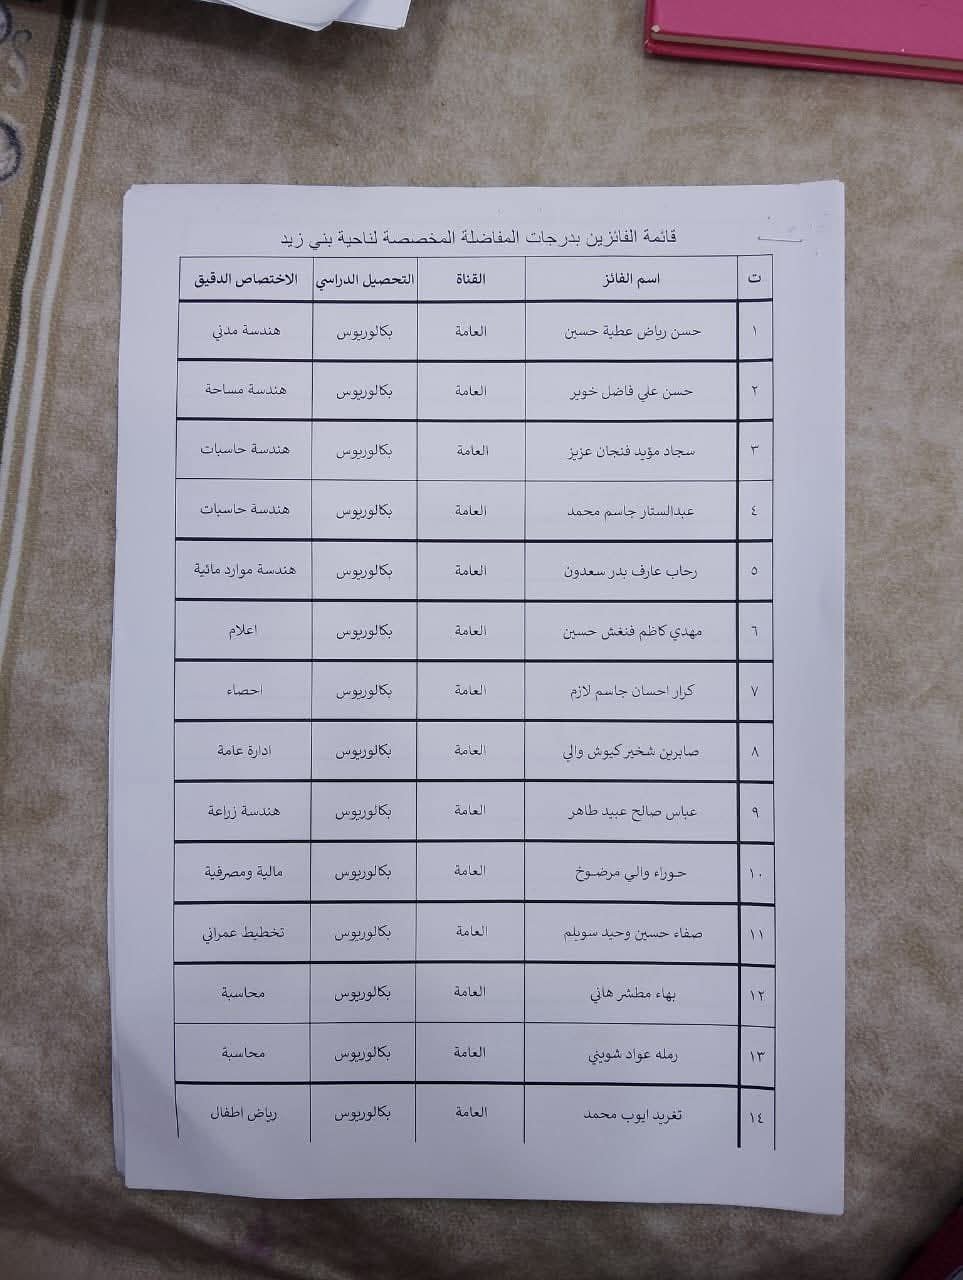 قائمة الفائزين بدرجات المفاضلة المخصصة لناحية بني زيد
ت اسم الفائز القناة التحصيل الدراسي الاختصاص الدقيق
١ حسن رياض عطية حسين العامة بكالوريوس هندسة مدني
٢ حسن علي فاضل خوير العامة بكالوريوس هندسة مساحة
٣ سجاد مؤيد فنجان عزيز العامة بكالوريوس هندسة حاسبات
٤ عبدالستار جاسم محمد العامة بكالوريوس هندسة حاسبات
٥ رحاب عارف بدر سعدون العامة بكالوريوس هندسة موارد مائية
٦ مهدي كاظم فنغش حسين العامة بكالوريوس اعلام
٧ كرار احسان جاسم لازم العامة بكالوريوس احصاء
٨ صابرين شخير كيوش والي العامة بكالوريوس ادارة عامة
٩ عباس صالح عبيد طاهر العامة بكالوريوس هندسة زراعة
١٠ حوراء والي مرضوخ العامة بكالوريوس مالية ومصرفية
١١ صفاء حسين وحيد سويلم العامة بكالوريوس تخطيط عمراني
١٢ بهاء مطشر هاني العامة بكالوريوس محاسبة
١٣ رمله عواد شويني العامة بكالوريوس محاسبة
١٤ تغريد ايوب محمد العامة بكالوريوس رياض اطفال